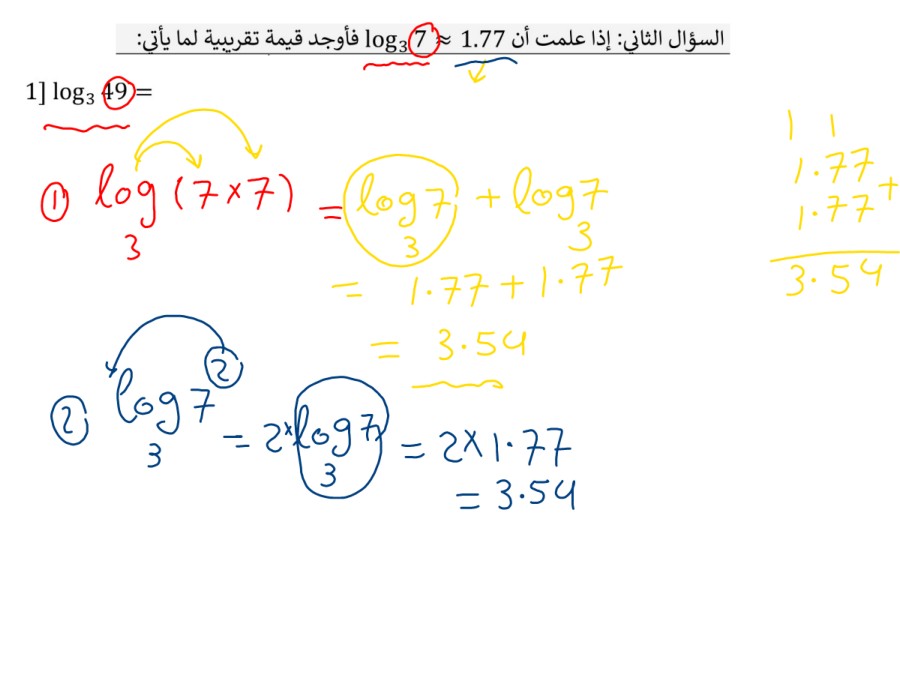 السؤال الثاني: إذا علمت أن log₃ 7 ≈ 1.77 فأوجد قيمة تقريبية لما يأتي:
1] log₃ 49 =
① log₃ (7 × 7) = log₃ 7 + log₃ 7
= 1.77 + 1.77
= 3.54
1 1
1.77
1.77 +
3.54
② log₃ 7² = 2 × log₃ 7 = 2 × 1.77
= 3.54